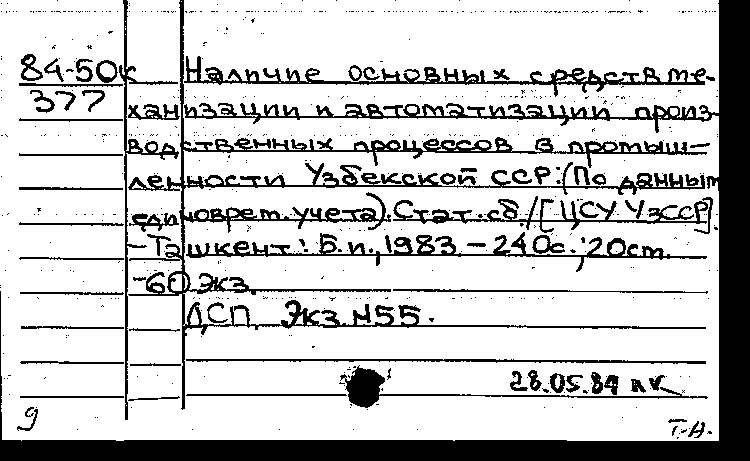 84-50к Наличие основных средств ме-
377 ханизации и автоматизации произ-
водственных процессов в промыш-
ленности Узбекской ССР: (По данным
единоврем. учета). Стат. сб. / [ЦСУ УзССР].
- Ташкент: Б.и., 1983. - 240с.; 20см.
- 60 Экз.
ДСП. Экз. №55.
28.05.84 пк
9
Т.А.